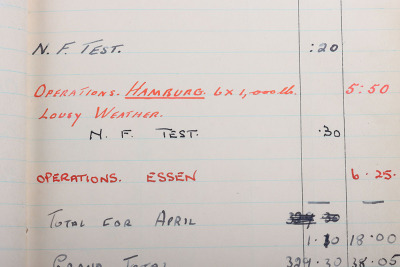 N. F. TEST. :20
OPERATIONS. HAMBURG. 6 x 1,000 lb. 5:50
LOUSY WEATHER.
N. F. TEST. .30
OPERATIONS. ESSEN 6.25.
TOTAL FOR APRIL
1.30 18.00
GRAND TOTAL 329.30 38.05